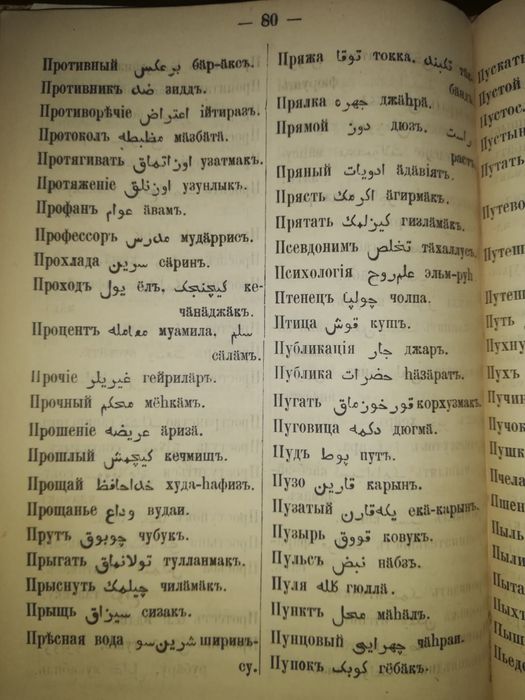 — 80 —
Противный برعكس бар-аксъ.
Противникъ ضد зиддъ.
Противорѣчіе اعتراض ійтиразъ.
Протоколъ مظبطه мäзбäтä.
Протягивать اوزاتماق узатмакъ.
Протяженіе اوزنلق узунлыкъ.
Профанъ عوام äвамъ.
Профессоръ مدرس мудäррисъ.
Прохлада سرين сäринъ.
Проходъ يول ёлъ, كيچنجك ке-
чäнäджäкъ.
Процентъ معامله муамила, سلم
сäлäмъ.
Прочіе غيريلر гейрилäръ.
Прочный محكم мёһкäмъ.
Прошеніе عريضه äризä.
Прошлый كيچمش кечмишъ.
Прощай خداحافظ худа-һафизъ.
Прощанье وداع вудаи.
Прутъ چوبوق чубукъ.
Прыгать تولانماق тулланмакъ.
Прыснуть چيلمك чилäмäкъ.
Прыщъ سيزاق сизакъ.
Прѣсная вода شرين سو ширинъ-
су.
Пряжа توقا токка, تكبند
Прялка جهره джäһрä.
Прямой دوز дюзъ, راست
растъ.
Пряный ادويات äдäвіятъ.
Прясть اگرمك äгирмäкъ.
Прятать گيزلمك гизлäмäкъ.
Псевдонимъ تخلص тäхаллусъ.
Психологія علم روح эльм-руһ
Птенецъ چولپا чолпа.
Птица قوش кушъ.
Публикація جار джаръ.
Публика حضرات һäзäратъ.
Пугать قورخوزماق корхузмакъ.
Пуговица دكمه дюгмä.
Пудъ پوط путъ.
Пузо قارين карынъ.
Пузатый يكه قارن екä-карынъ.
Пузырь قووق ковукъ.
Пульсъ نبض нäбзъ.
Пуля كلله гюллä.
Пунктъ محل мäһäлъ.
Пунцовый چهرايى чäһраи.
Пупокъ كوبك гёбäкъ.
Пускать
Пустой
Пустос
Пустын
Путать
Путево
Путеш
Путеш
Путь
Пухну
Пухъ
Пучин
Пучок
Пушк
Пчела
Пшен
Пыль
Пыли
Пыта
Пыхъ
Пыш
Пьеде